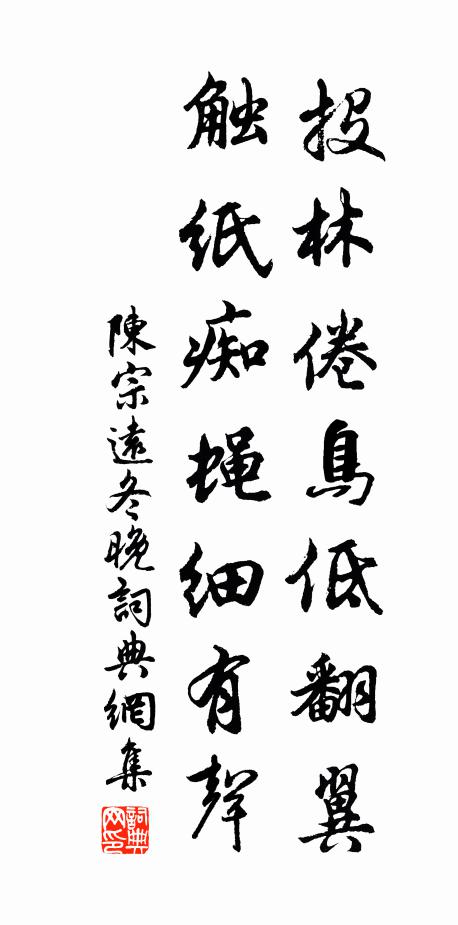 投林倦鳥低翻翼
触紙痴蝇细有聲
陳宗遠冬晚詞典網集
詞典网印